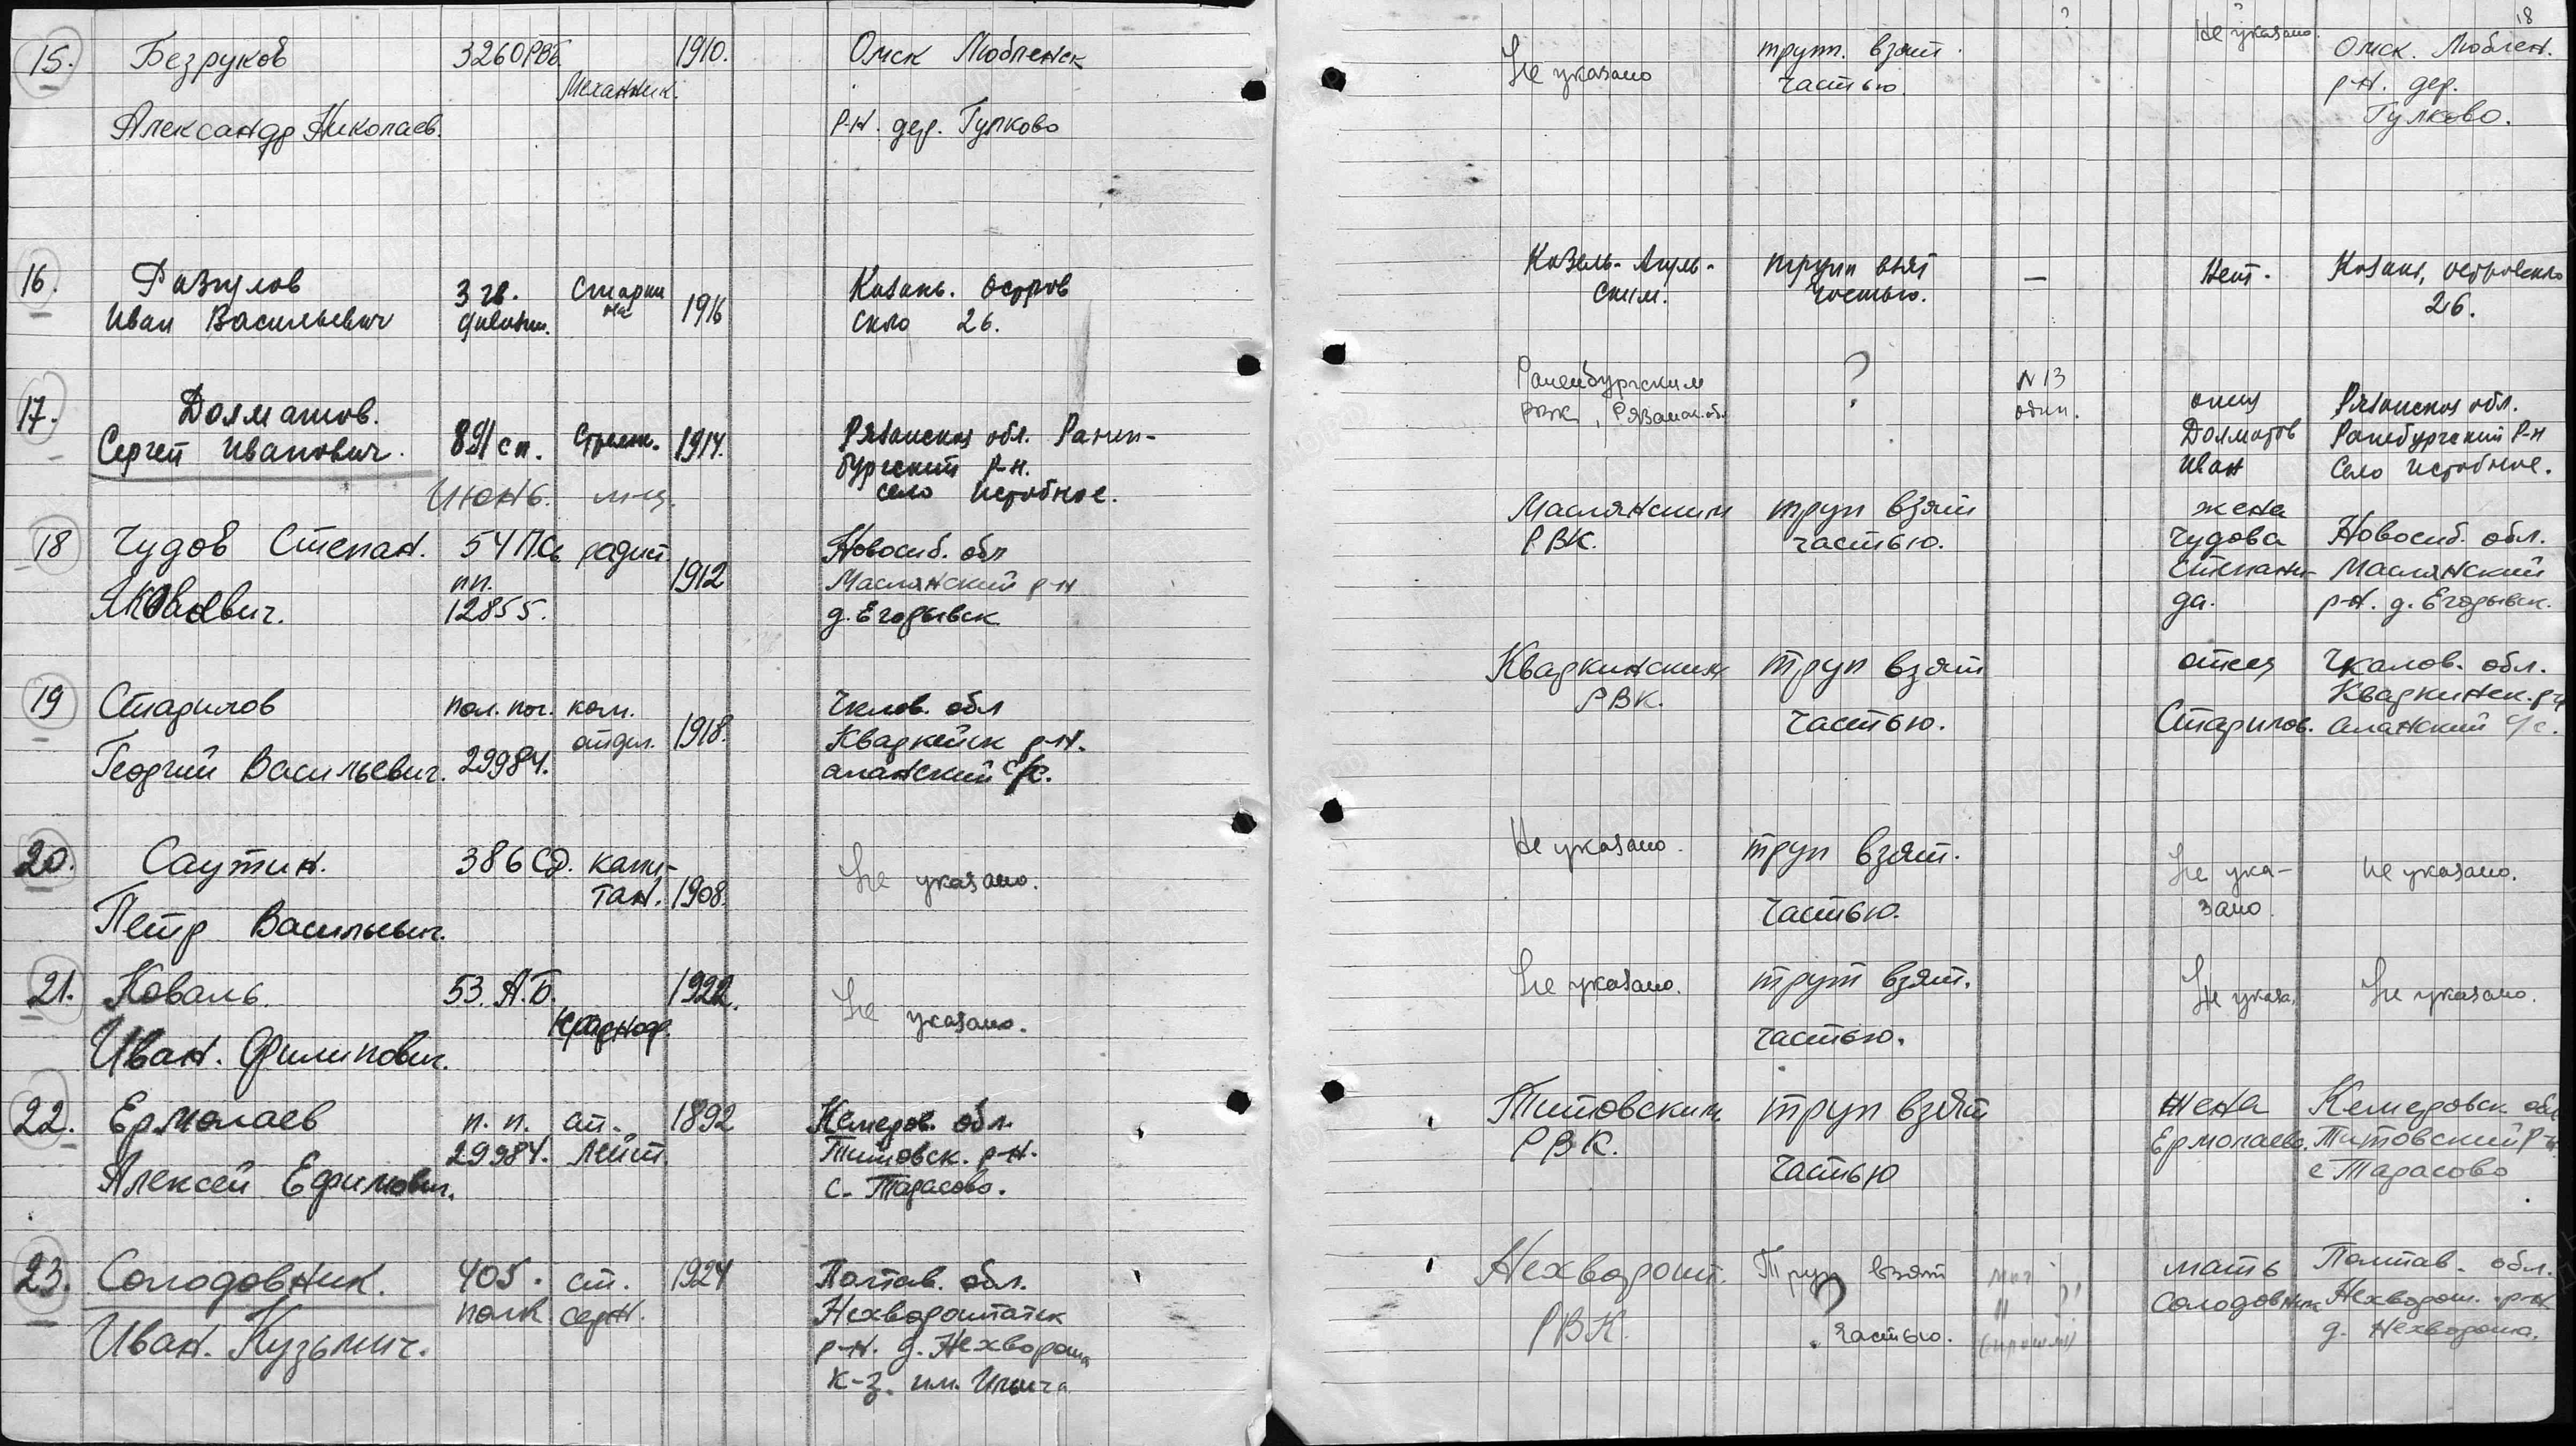 18
15. Безруков 3260РВб. 1910. Омск Любленск
Механник.
Александр Николаев. р-н. дер. Гулково
Не указано труп. взят Не указано. Омск. Люблен.
частью. р-н. дер.
Гулково.
16. Фазулов 3 гв. Старши 1916 Казань. Остров
Иван Васильевич дивизии. на ского 26.
труп взят — Нет. Казань, островского
частью. 26.
17. Долматов.
Сергей Иванович. 891 сп. Стрелк. 1914. Рязанская обл. Ранен-
бургский р-н.
Июнь. м-ц. село Истобное.
Раненбургским ? N 13 отец Рязанская обл.
РВК, Рязанск. об. один. Долматов Раненбургский р-н
Иван село Истобное.
18 Чудов Степан. 54 П.С. радист 1912 Новосиб. обл
пп. Маслянский р-н
Яковлевич. 12855. д. Егорьевск
Маслянским труп взят жена
РВК. частью. Чудова Новосиб. обл.
Степани- Маслянский
да. р-н. д. Егорьевск.
19 Старилов пол. поч. ком. 1918. Чклов. обл
отдел. Кваркейск р-н.
Георгий Васильевич. 29984. аланский с/с.
Кваркинским труп взят отец Чкалов. обл.
РВК. Кваркинск. р-н
частью. Старилов. аланский с/с.
20. Саутин. 386 СД. капи-
тан. 1908. Не указано.
Петр Васильевич.
Не указано. труп взят. Не ука- Не указано.
частью. зано.
21. Коваль. 53. А.Б. 1922. Не
Краснар. указано.
Иван. Филипович.
Не указано. труп взят. Не указа. Не указано.
частью.
22. Ермолаев п. п. ст. 1892 Кемеров. обл.
29984. лейт. Титовск. р-н.
Алексей Ефимович. с. Тарасово.
Титовским труп взят жена Кемеровск. обл
РВК. Ермолаева. Титовский р-н.
частью с Тарасово
23. Солодовник. 405. ст. 1924 Полтав. обл.
полк серж. Нехворощтанск
Иван. Кузьмич. р-н. д. Нехвороща
к-з. им. Ильича
Нехворощ. Труп взят мать Полтав. обл.
? Солодовник Нехворощ. р-н
РВК. частью. д. Нехвороща.